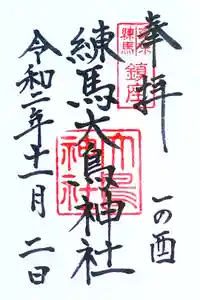 奉拝
東京
練馬
鎮座
一の酉
練馬大鳥神社
大鳥
神社
令和二年十一月二日